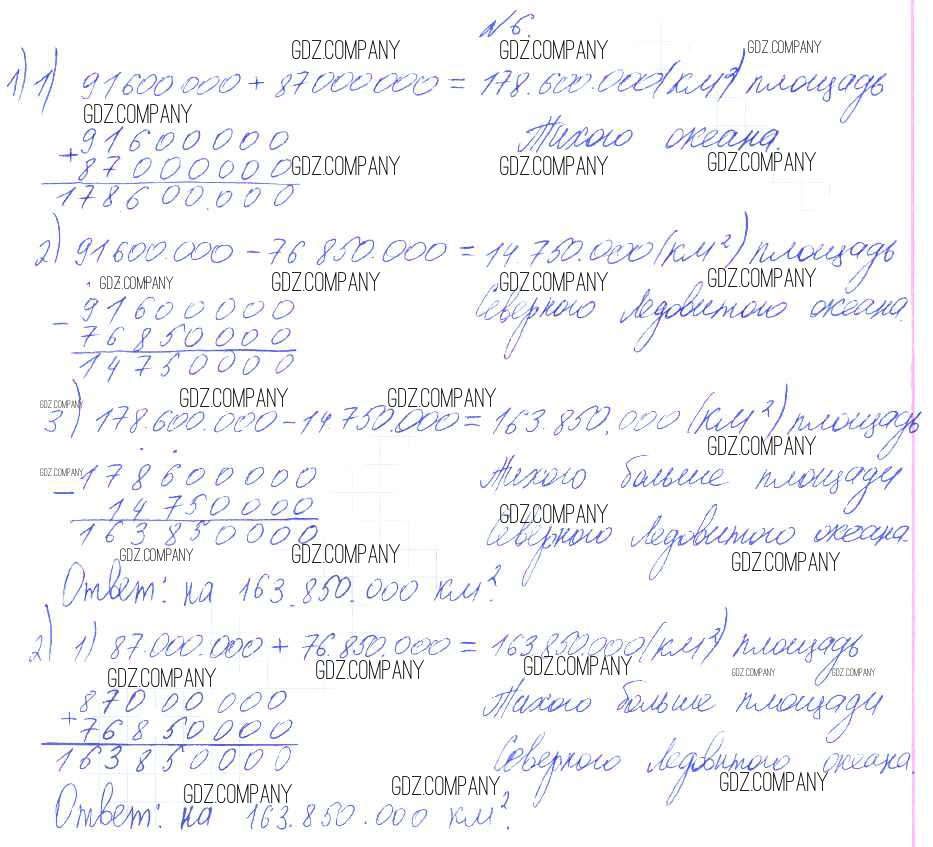 №6.
GDZ.COMPANY GDZ.COMPANY GDZ.COMPANY
1) 1) 91600000 + 87000000 = 178.600.000 (км²) площадь
GDZ.COMPANY
91600000 Тихого океана.
+ 87000000 GDZ.COMPANY GDZ.COMPANY GDZ.COMPANY
178600.000
2) 91600.000 - 76 850.000 = 14 750.000 (км²) площадь
GDZ.COMPANY GDZ.COMPANY GDZ.COMPANY GDZ.COMPANY
91600000 Северного Ледовитого океана.
- 76850000
14750000
GDZ.COMPANY GDZ.COMPANY GDZ.COMPANY
3) 178.600.000 - 14 750.000 = 163.850.000 (км²) площадь
GDZ.COMPANY
GDZ.COMPANY
178600000 Тихого больше площади
- 14750000 GDZ.COMPANY
163850000 Северного Ледовитого океана.
GDZ.COMPANY GDZ.COMPANY GDZ.COMPANY
Ответ: на 163.850.000 км².
2) 1) 87.000.000 + 76.850.000 = 163.850.000 (км²) площадь
GDZ.COMPANY GDZ.COMPANY GDZ.COMPANY GDZ.COMPANY GDZ.COMPANY
87000000 Тихого больше площади
+ 76850000
163850000 Северного Ледовитого океана.
GDZ.COMPANY GDZ.COMPANY GDZ.COMPANY
Ответ: на 163.850.000 км².